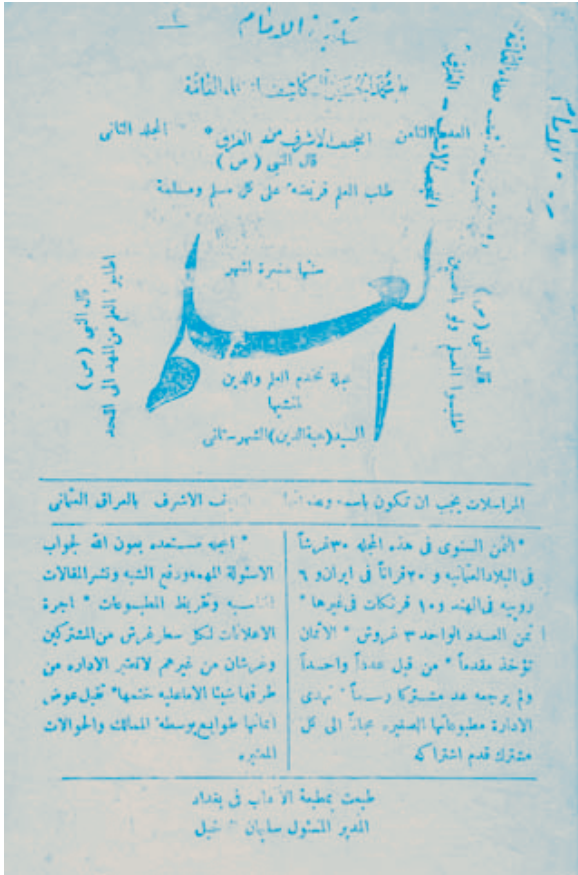 ٢
العدد الثامن النجف الاشرف العراق * الجلد الثانى
قال النبى (ص)
طلب العلم فريضه على كل مسلم ومسلمة
العلم
سنتها عشرة اشهر
قال النبى (ص)
اطلبوا العلم من المهد الى اللحد
قال النبى (ص)
اطلبوا العلم ولو بالصين
مجلة تخدم العلم والدين
لمنشئها
السيد (هبة الدين) الشهرستانى
المراسلات يجب ان تكون باسمه الاشرف بالعراق العثمانى
* الثمن السنوى فى هذه المجله ٣٠ غرشاً
فى البلاد العثمانيه و ٣٠ قراناً فى ايران و ٦
روبيه فى الهند و ١٠ فرنكات فى غيرها *
ثمن العدد الواحد ٣ غروش * الاثمان
تؤخذ مقدماً * من قبل عدداً واحداً
ولم يرجعه عد مشتركا رسماً * تهدى
الادارة مطبوعاتها الصغيره مجاناً الى كل
مشترك قدم اشتراكه
* المجله مستعده بعون الله لجواب
الاسئولة المهمه ودفع الشبه ونشر المقالات
المناسبه وتقريظ المطبوعات * اجرة
الاعلانات لكل سطر غرش من المشتركين
وغرشان من غيرهم لا تعتبر الاداره من
طرفها شيئا الا ما عليه ختمها * تقبل عوض
اثمانها طوابع بوسطة الممالك والحوالات
المعتبره
طبعت بمطبعة الآداب فى بغداد
المدير المسئول سليمان